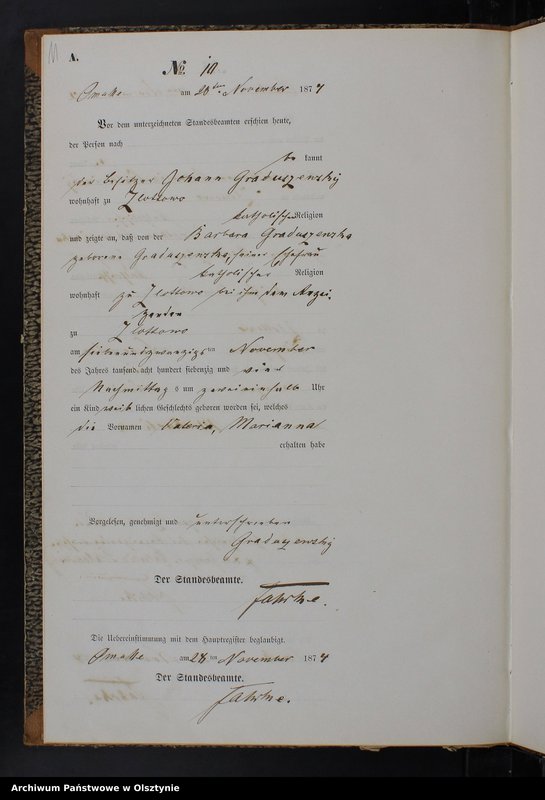 11
A.
№ 10
am 28ten November 1874
Vor dem unterzeichneten Standesbeamten erschien heute,
der Person nach
be kannt
der Besitzer Johann Graduszewsky
wohnhaft zu Zlottowo
katholischer Religion
und zeigte an, daß von der Barbara Graduszewska
geborene Graduszewska, seiner Ehefrau
katholischer Religion
wohnhaft zu Zlottowo bei ihm dem Anzei-
genden
zu Zlottowo
am siebenundzwanzigsten November
des Jahres tausend acht hundert siebenzig und vier
Nachmittag s um zweieinhalb Uhr
ein Kind weib lichen Geschlechts geboren worden sei, welches
die Vornamen Valeria, Marianna
erhalten habe
Vorgelesen, genehmigt und unterschrieben
Graduszewsky
Der Standesbeamte.
Die Uebereinstimmung mit dem Hauptregister beglaubigt.
am 28ten November 1874
Der Standesbeamte.
Archiwum Państwowe w Olsztynie